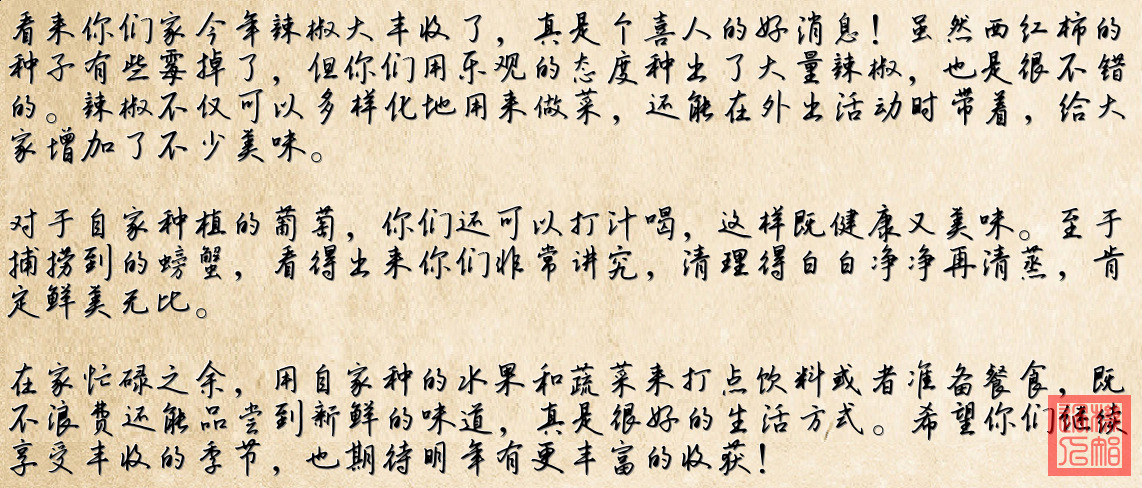 看来你们家今年辣椒大丰收了，真是个喜人的好消息！虽然西红柿的
种子有些霉掉了，但你们用乐观的态度种出了大量辣椒，也是很不错
的。辣椒不仅可以多样化地用来做菜，还能在外出活动时带着，给大
家增加了不少美味。
对于自家种植的葡萄，你们还可以打汁喝，这样既健康又美味。至于
捕捞到的螃蟹，看得出来你们非常讲究，清理得白白净净再清蒸，肯
定鲜美无比。
在家忙碌之余，用自家种的水果和蔬菜来打点饮料或者准备餐食，既
不浪费还能品尝到新鲜的味道，真是很好的生活方式。希望你们继续
享受丰收的季节，也期待明年有更丰富的收获！